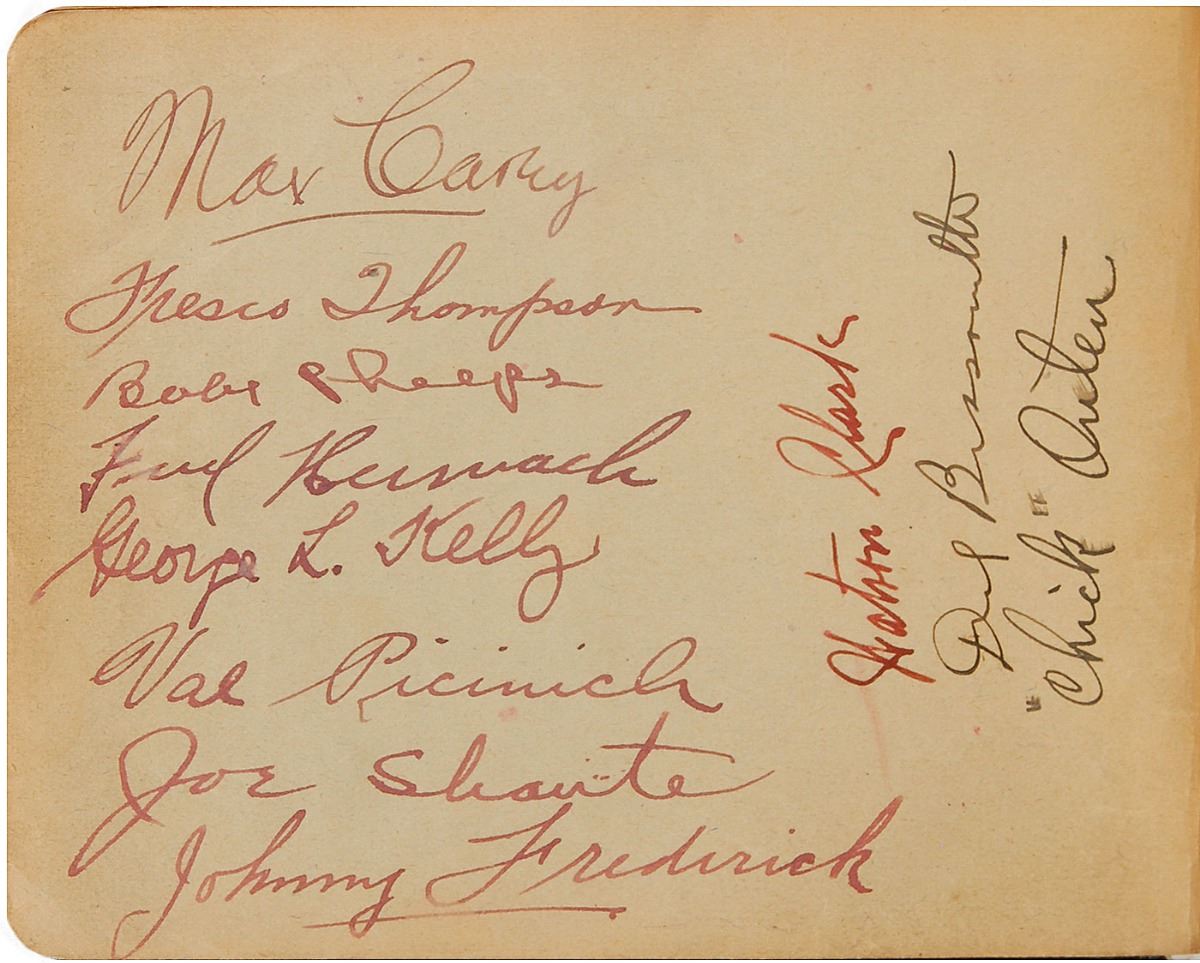 Max Carey
Fresco Thompson
Babe Phelps
Fred Heimach
George L. Kelly
Val Picinich
Joe Shaute
Johnny Frederick
Watson Clark
Del Bissonette
"Chick" Outen